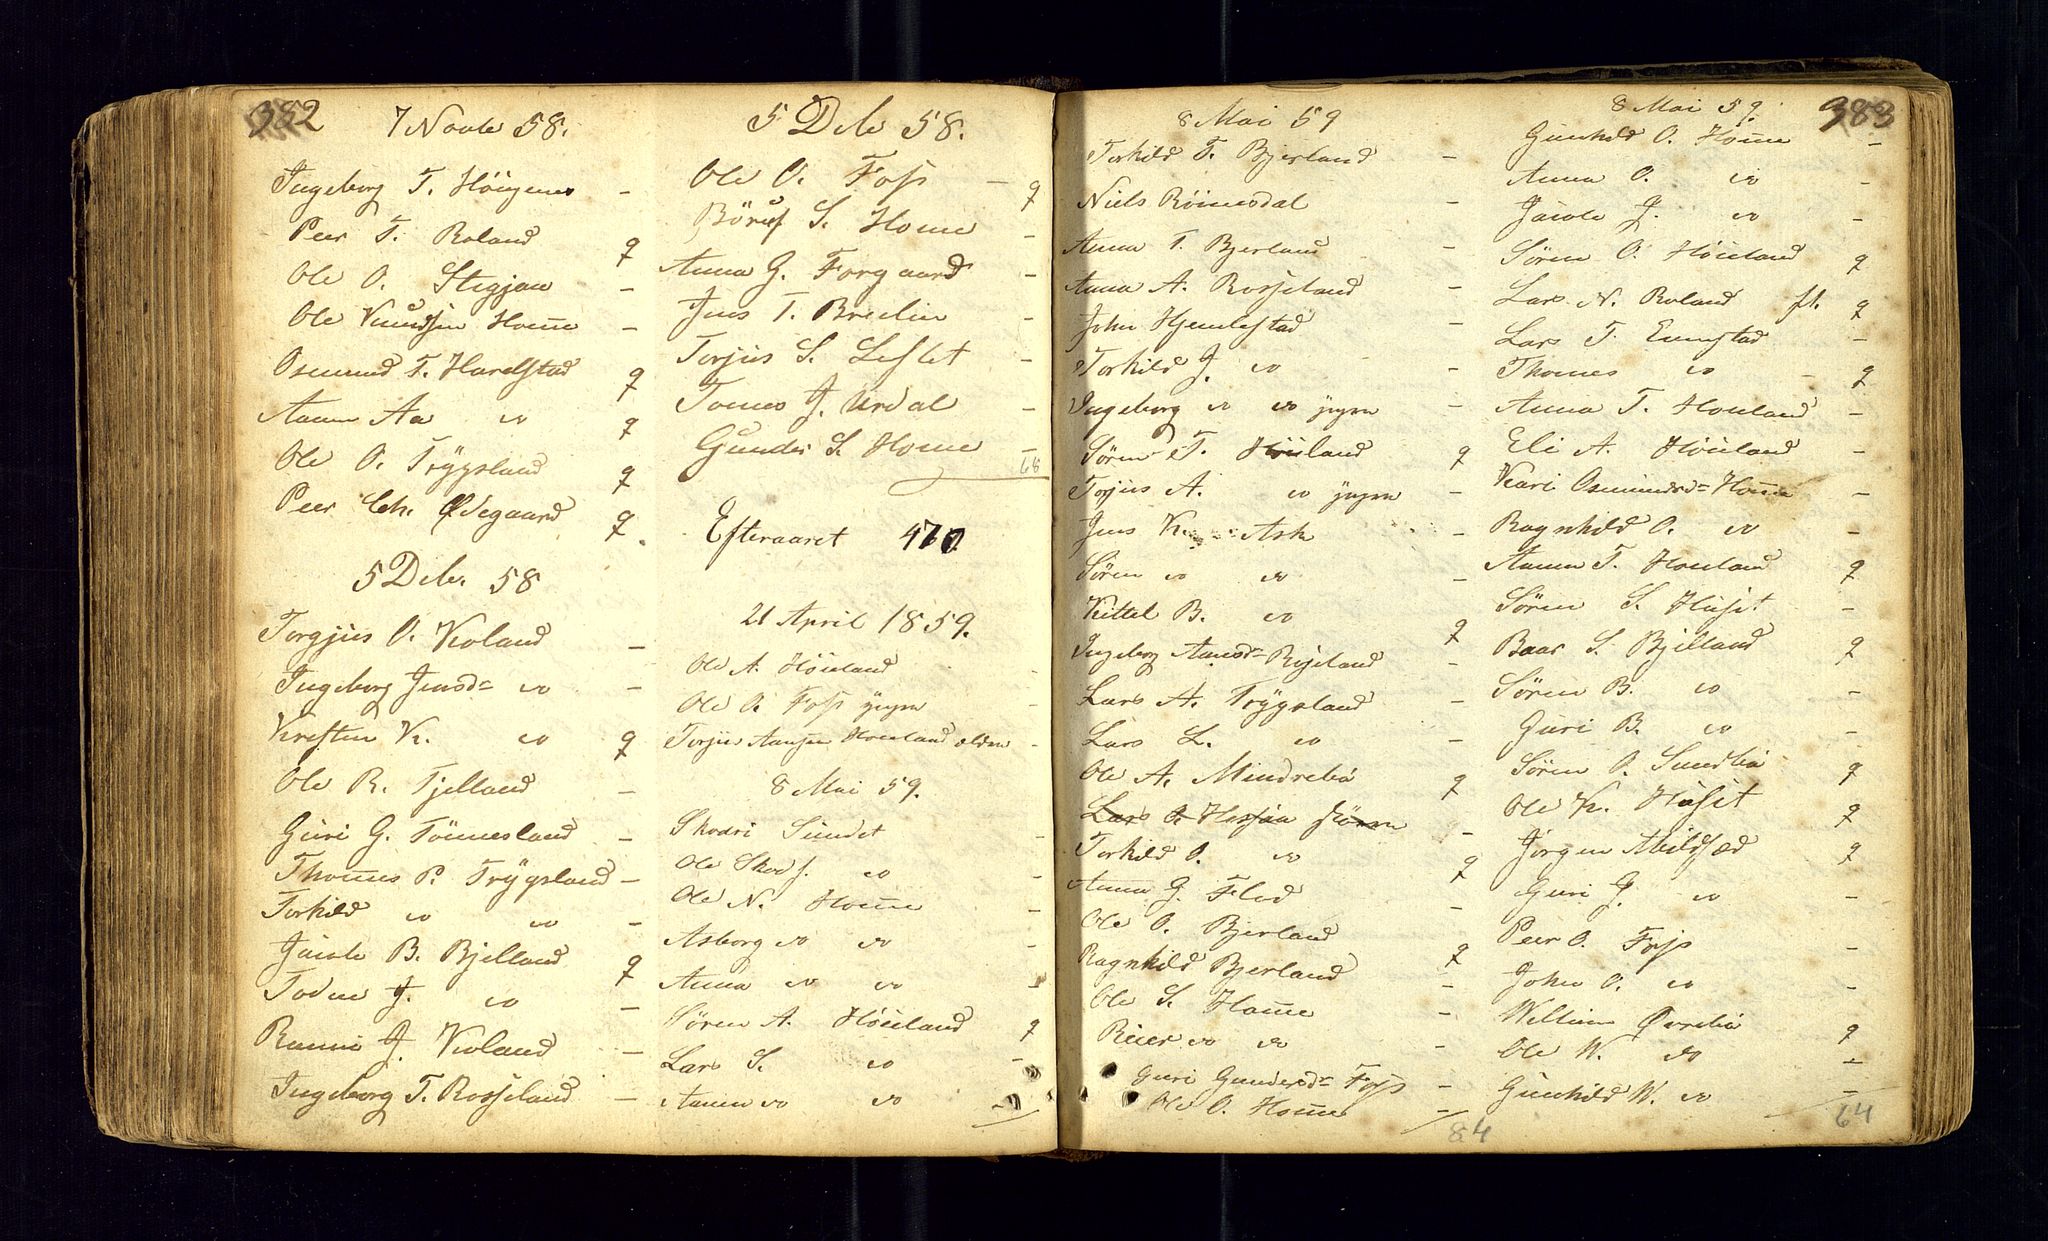 382
7 Novbr 58.
Ingeborg T. Höigenes –
Peer T. Roland q
Ole O. Stigjan –
Ole Knudsen Home –
Osmund T. Harelstad q
Aanen Aa do q
Ole O. Trygsland q
Peer Chr. Ødegaard q.
5 Debr. 58
Torgjus O. Kroland –
Ingeborg Jensd= do –
Kresten K. do q
Ole R. Fjelland –
Guri G. Tönnesland –
Thomes P. Trygsland –
Torkild do do –
Jacob B. Bjelland q
Todne J. do –
Ranni J. Kroland –
Ingeborg T. Rosseland –
5 Debr 58.
Ole O. Foss – q
Böruf S. Home –
Anna G. Forgaard –
Jens T. Breilin –
Torjus S. Leflet –
Tomes J. Urdal –
Gunder S. Home –
68
Efteraaret 470
21 April 1859.
Ole A. Höiland –
Ole O. Foss yngre –
Torjus Aansen Höiland ældre –
8 Mai 59.
Skodvi Sundet –
Ole Skodf. do –
Ole N. Home –
Asborg do do –
Anna do do –
Sören A. Höiland q
Lars S. do –
Aanen do do –
8 Mai 59
Torkild T. Bjerland –
Niels Röinesdal –
Anna T. Bjerland –
Anna A. Rosseland –
John Hjemlestad –
Torkild J. do –
Ingeborg do do yngre –
Sören T. Höiland q
Torjus A. do yngre –
Jens K. Ask –
Sören do do –
Kittel B. do q
Ingeborg Aanesd= Rosseland –
Lars A. Trygsland –
Lars L. do –
Ole A. Mindrebö q
Lars O. Hessaa –
Torkild O. do q
Anna G. Flod –
Ole O. Bjerland q
Ragnhild Bjerland –
Ole S. Home –
Reier do do –
Guri Gundersd= Foss –
Ole O. Home –
84
383
8 Mai 59.
Gunhild O. Home –
Anna O. do –
Jacob J. do –
Sören O. Höiland q
Lars N. Roland fl. q
Lars T. Eunstad –
Thomes do – q
Anna T. Höiland –
Eli A. Höiland –
Kari Osmundsd= Home –
Ragnhild O. do –
Aanen T. Höiland q
Sören S. Huset –
Baar S. Bjelland q
Sören B. do –
Guri B. do –
Sören O. Sundbö q
Ole K. Huset q
Jörgen Abildsæd q
Guri J. do –
Peer O. Foss –
John O. do –
William Øvrebö q
Ole W. do –
Gunhild W. do –
64